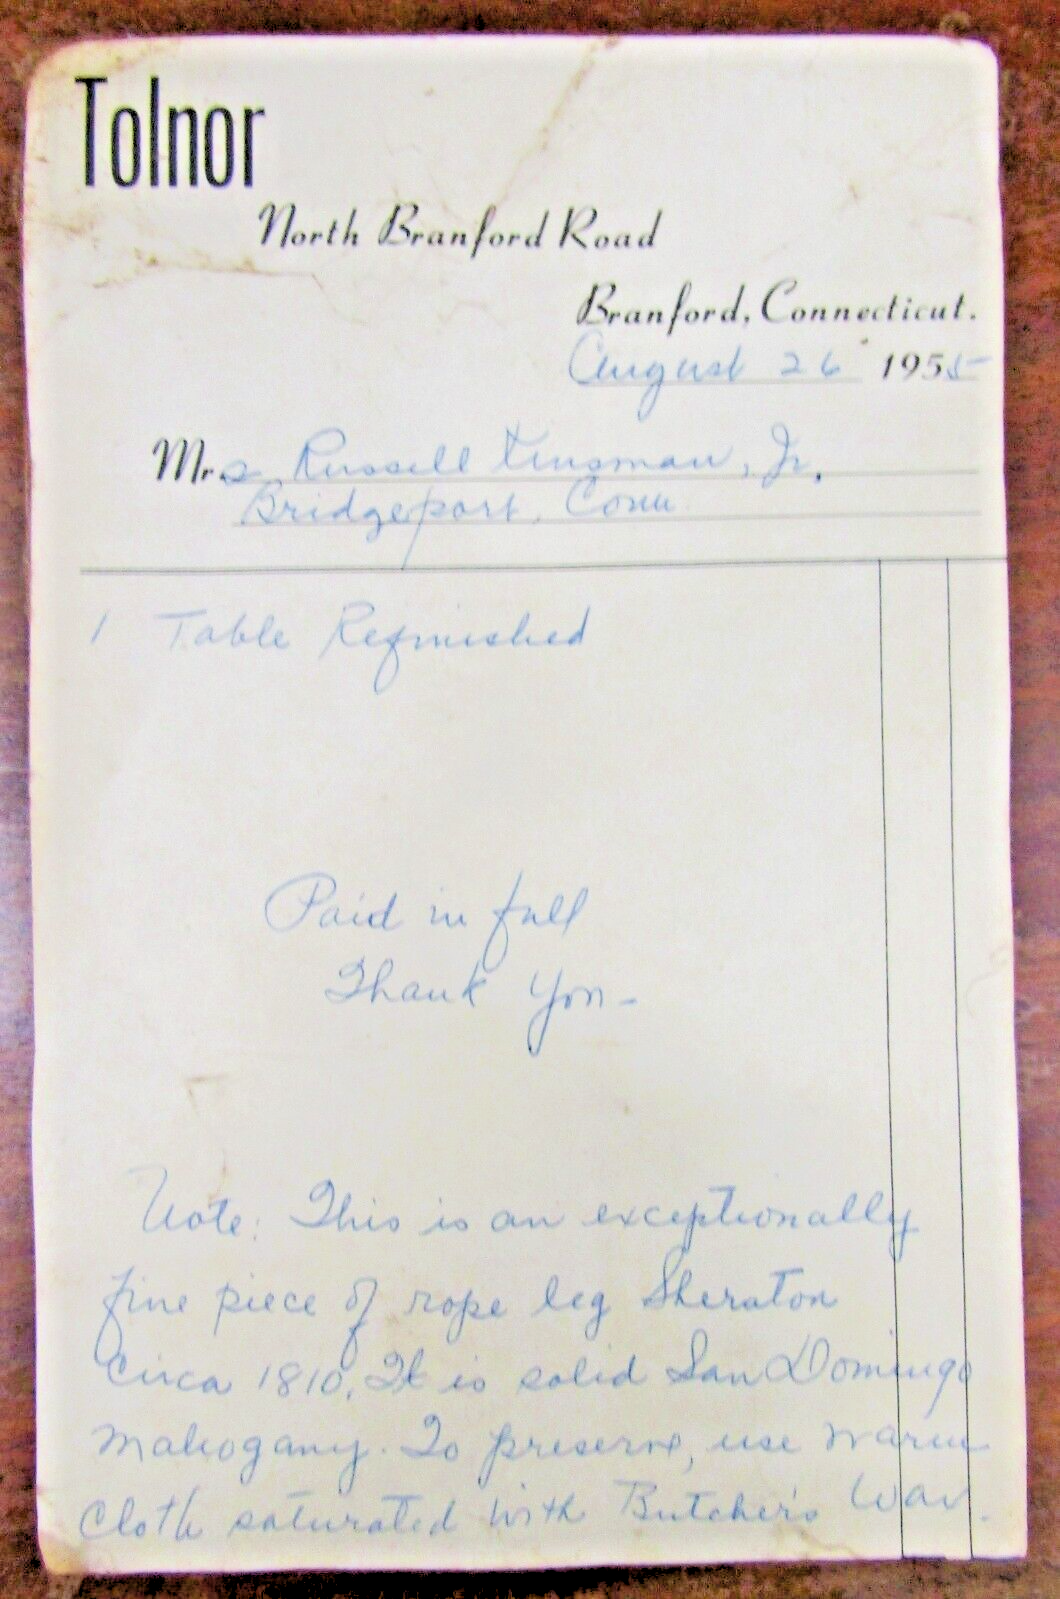 Tolnor
North Branford Road
Branford, Connecticut.
August 26 1955
Mrs Russell Kinsman, Jr.
Bridgeport, Conn
1 Table Refinished
Paid in full
Thank You -
Note: This is an exceptionally
fine piece of rope leg Sheraton
Circa 1810. It is solid San Domingo
mahogany. To preserve, use warm
cloth saturated with Butcher's Wax.